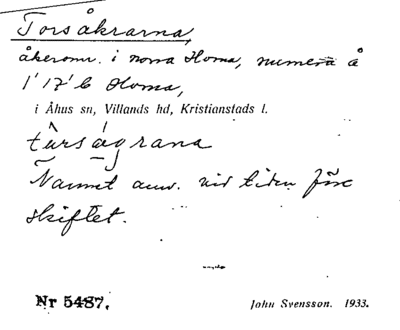 Torsåkrarna,
åkeromr. i norra Homa, numera å
1' 17' b Homa,
i Åhus sn, Villands hd, Kristianstads l.
tùrságrana
Namnet anv. vid tiden före
skiftet.
Nr 5487.
John Svensson. 1933.